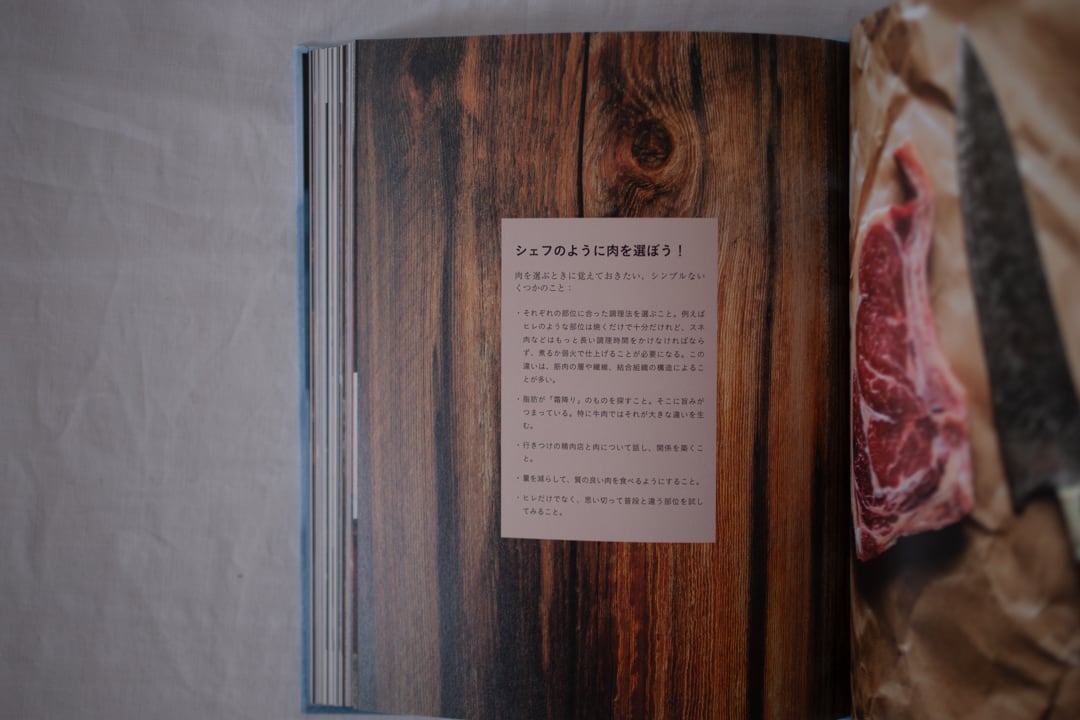 シェフのように肉を選ぼう！
肉を選ぶときに覚えておきたい、シンプルない
くつかのこと：
・それぞれの部位に合った調理法を選ぶこと。例えば
ヒレのような部位は焼くだけで十分だけれど、スネ
肉などはもっと長い調理時間をかけなければなら
ず、煮るか弱火で仕上げることが必要になる。この
違いは、筋肉の層や繊維、結合組織の構造によるこ
とが多い。
・脂肪が「霜降り」のものを探すこと。そこに旨みが
つまっている。特に牛肉ではそれが大きな違いを生
む。
・行きつけの精肉店と肉について話し、関係を築くこ
と。
・量を減らして、質の良い肉を食べるようにすること。
・ヒレだけでなく、思い切って普段と違う部位を試し
てみること。